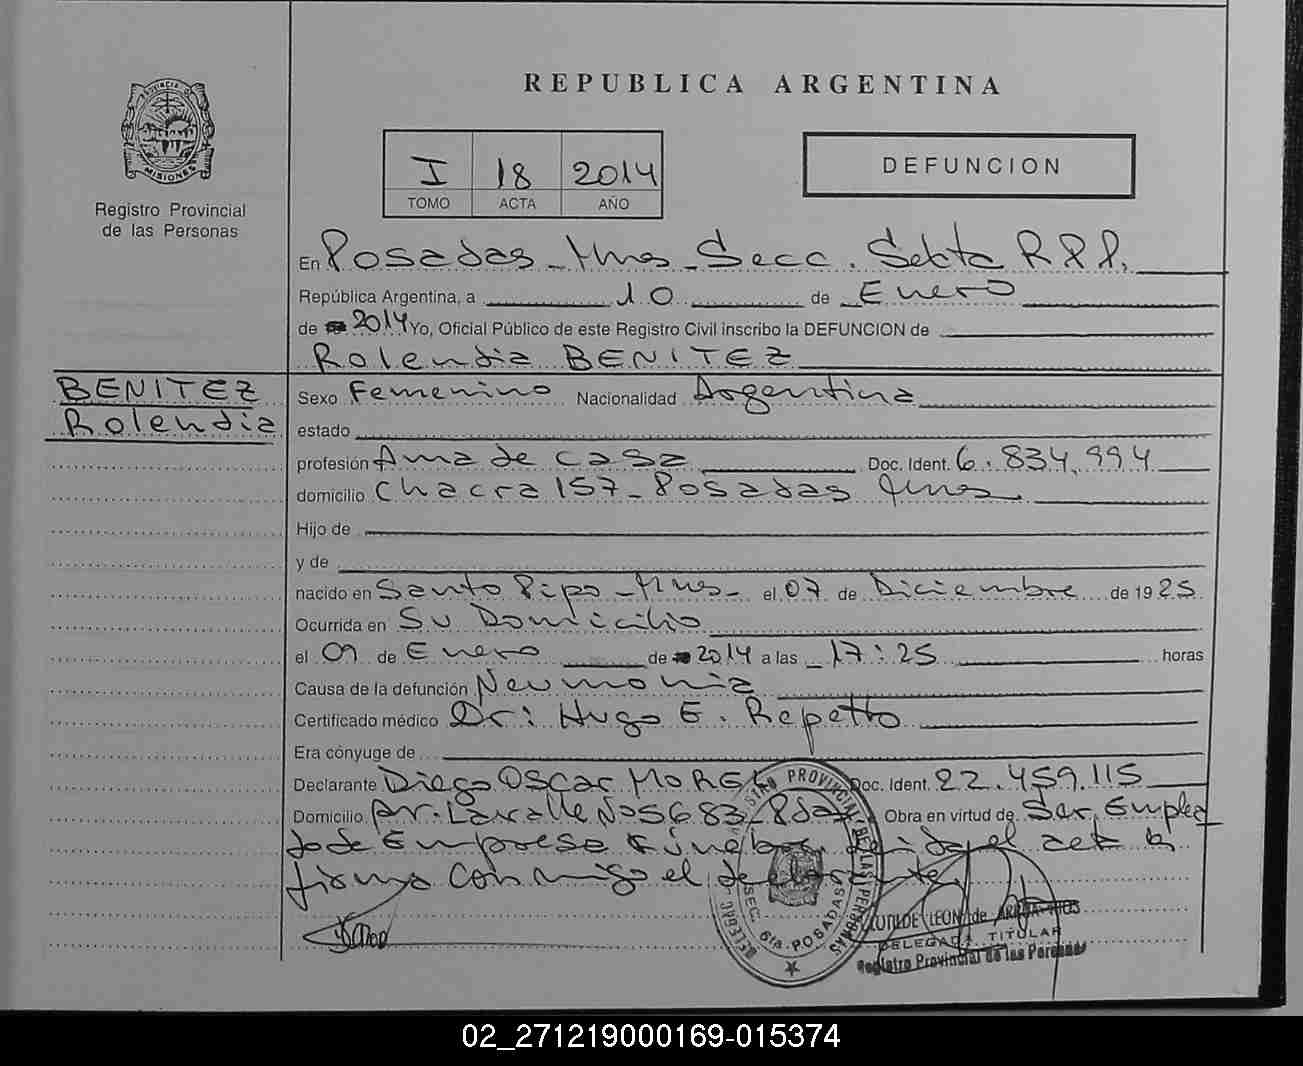 REPUBLICA ARGENTINA
PROVINCIA DE
MISIONES
Registro Provincial
de las Personas
I 18 2014
TOMO ACTA AÑO
DEFUNCION
En Posadas - Mnes - Secc. Sexta R.P.P.
República Argentina, a 10 de Enero
de 2014 Yo, Oficial Público de este Registro Civil inscribo la DEFUNCION de
Rolendia BENITEZ
BENITEZ
Rolendia
Sexo Femenino Nacionalidad Argentina
estado
profesión Ama de casa Doc. Ident. 6.834.994
domicilio Chacra 157 - Posadas Mnes.
Hijo de
y de
nacido en Santo Pipo - Mnes - el 07 de Diciembre de 1925
Ocurrida en Su Domicilio
el 09 de Enero de 2014 a las 17:25 horas
Causa de la defunción Neumonia
Certificado médico Dr: Hugo E. Repetto
Era cónyuge de
Declarante Diego Oscar MOREL Doc. Ident. 22.459.115
Domicilio Av. Lavalle Nº 5683 - Pdas Obra en virtud de Ser Emplea
do de Empresa Fúnebre, leida el acta la
firma conmigo el declarante.
REGISTRO PROVINCIAL DE LAS PERSONAS
DELEGAC.
SEC. 6ta. POSADAS
CLOTILDE LEON de
DELEGADA TITULAR
Registro Provincial de las Personas
02_271219000169-015374